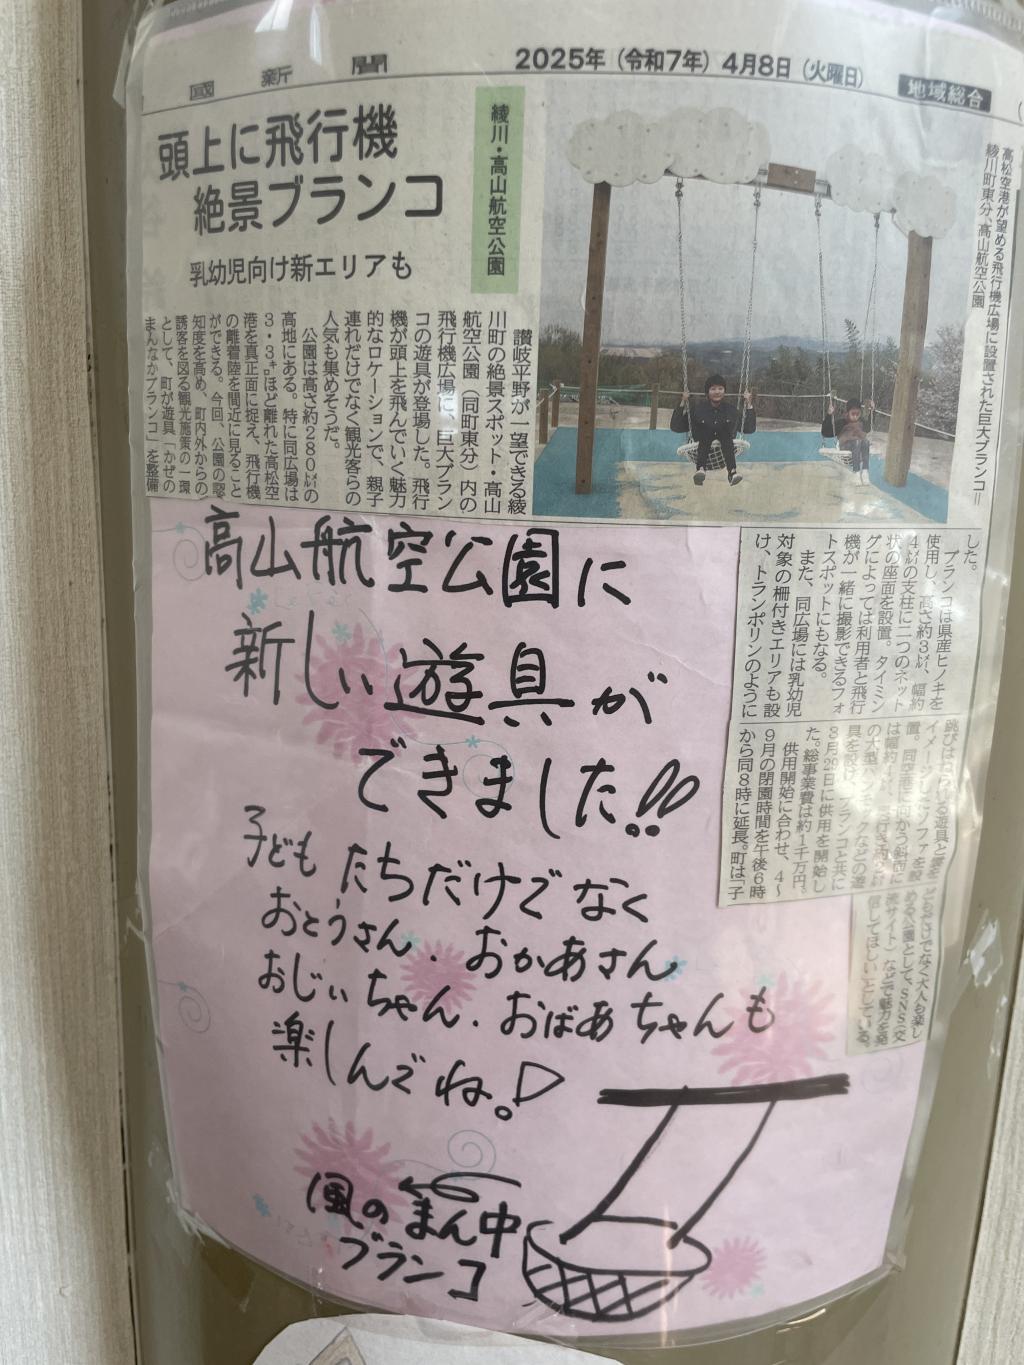 國新聞
2025年（令和7年）4月8日（火曜日）
地域総合
頭上に飛行機
絶景ブランコ
乳幼児向け新エリアも
綾川・高山航空公園
高松空港が望める飛行機広場に設置された巨大ブランコ＝
綾川町東分、高山航空公園
讃岐平野が一望できる綾
川町の絶景スポット・高山
航空公園（同町東分）内の
飛行機広場に、巨大ブラン
コの遊具が登場した。飛行
機が頭上を飛んでいく魅力
的なロケーションで、親子
連れだけでなく観光客らの
人気も集めそうだ。
公園は高さ約280㍍の
高地にある。特に同広場は
3・3㌔ほど離れた高松空
港を真正面に捉え、飛行機
の離着陸を間近に見ること
ができる。今回、公園の認
知度を高め、町内外からの
誘客を図る観光施策の一環
として、町が遊具「かぜの
まんなかブランコ」を整備
した。
ブランコは県産ヒノキを
使用し、高さ約3㍍、幅約
4㍍の支柱に二つのネット
状の座面を設置。タイミン
グによっては利用者と飛行
機が一緒に撮影できるフォ
トスポットにもなる。
また、同広場には乳幼児
対象の柵付きエリアも設
け、トランポリンのように
イメージしたソファを設
の大型ハンモックなどの遊
具を設け、ブランコと共に
3月29日に供用を開始し
た。総事業費は約1千万円。
供用開始に合わせ、4～
9月の閉園時間を午後6時
から同8時に延長。町は「子
どもだけでなく大人も楽し
める公園として、SNS（交
流サイト）などで魅力を発
信してほしい」としている。
高山航空公園に
新しい遊具が
できました!!
子どもたちだけでなく
おとうさん、おかあさん
おじいちゃん、おばあちゃんも
楽しんでね。
風のまん中
ブランコ